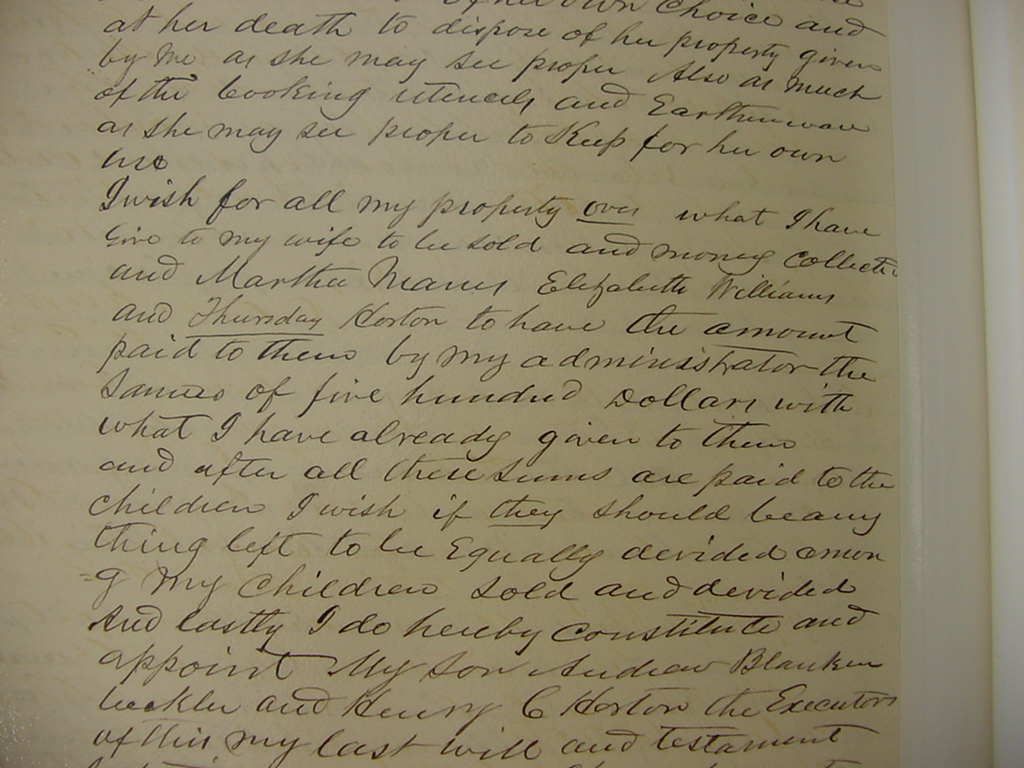 her own choice and
at her death to dispose of her property given
by me as she may see proper Also as much
of the cooking utencely and Earthenware
as she may see proper to Keep for her own
use
I wish for all my property over what I have
Give to my wife to be sold and money Collecte
and Martha Means Elizabeth Williams
and Thursday Horton to have the amount
paid to them by my administrator the
Sames of five hundred dollars with
what I have already given to them
and after all these sums are paid to the
Children I wish if they should be any
thing left to be Equally devided amon
g My Children Sold and devided
And lastly I do hereby Constitute and
appoint My Son Andrew Blanken
beckler and Henry C Horton the Executors
of this my last will and testament